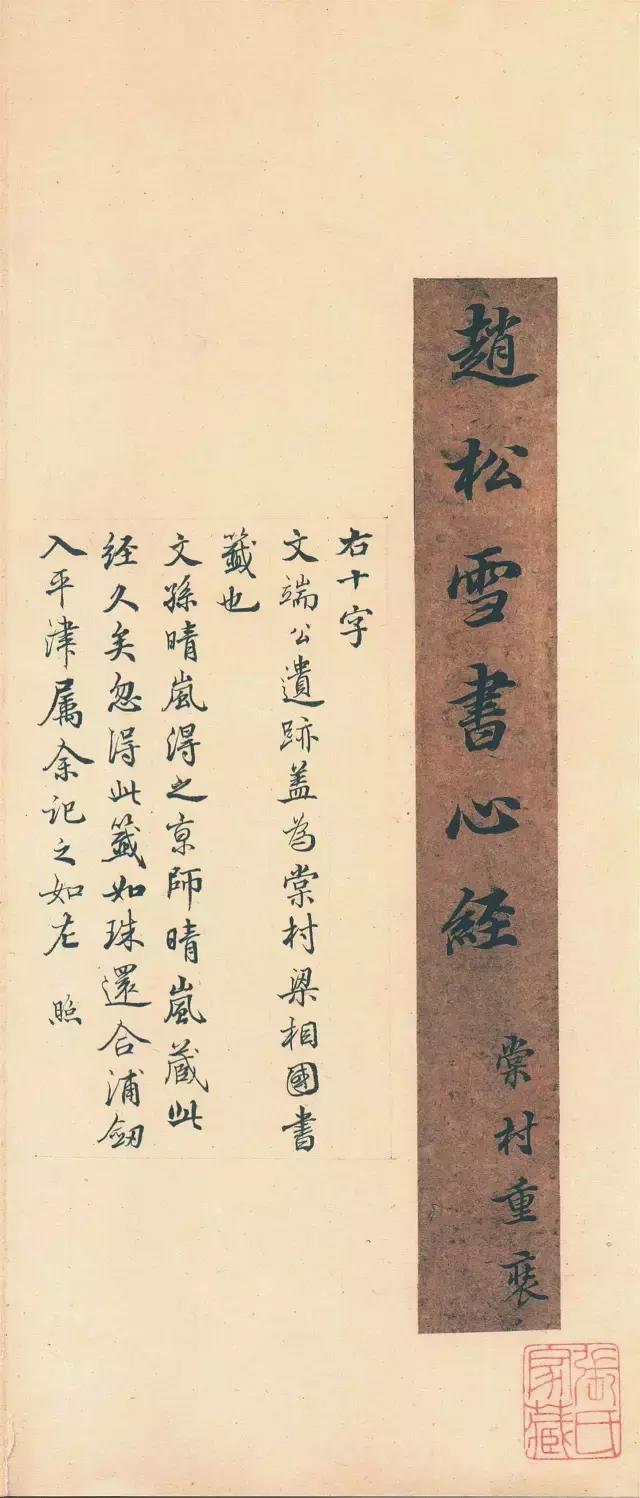 趙松雪書心經
棠村重裝
右十字
文端公遺跡蓋為棠村梁相國書
籤也
文孫晴嵐得之京師晴嵐藏此
经久矣忽得此籤如珠還合浦劒
入平津属余记之如左 照
張氏
家藏